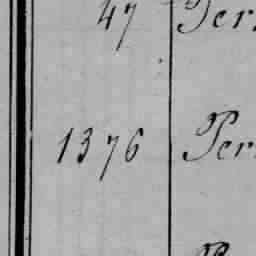 47 Per
1376 Per